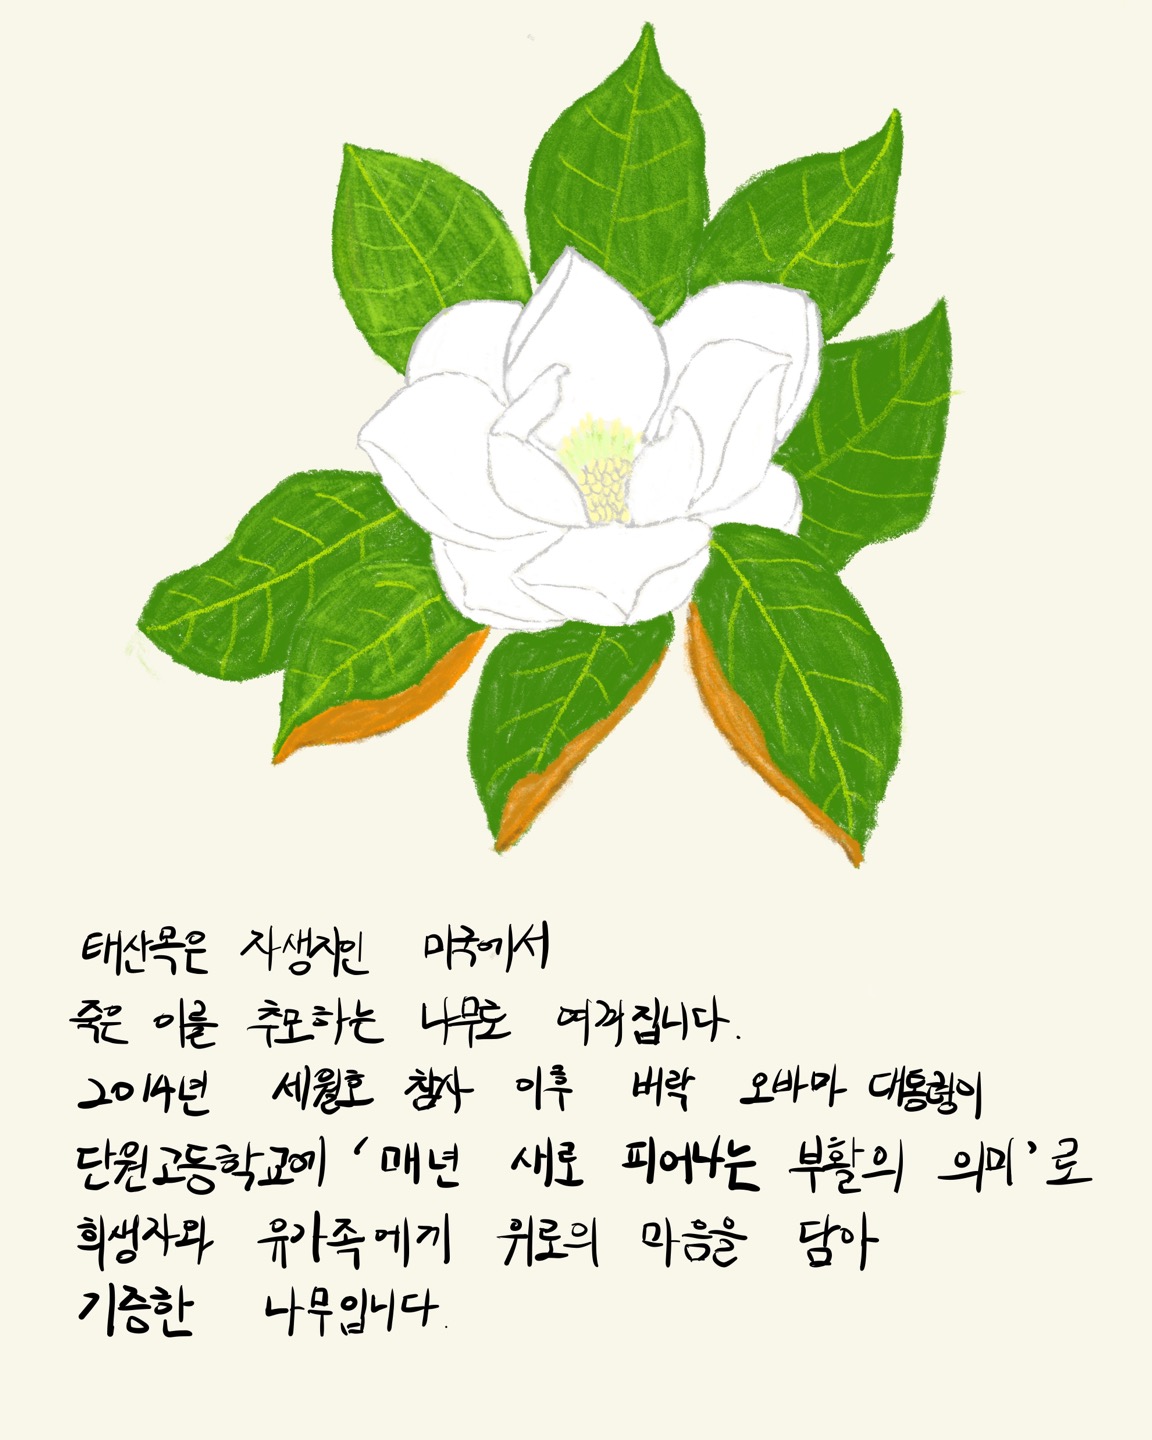 태산목은 자생지인 미국에서
죽은 이를 추모하는 나무로 여겨집니다.
2014년 세월호 참사 이후 버락 오바마 대통령이
단원고등학교에 '매년 새로 피어나는 부활의 의미'로
희생자와 유가족에게 위로의 마음을 담아
기증한 나무입니다.